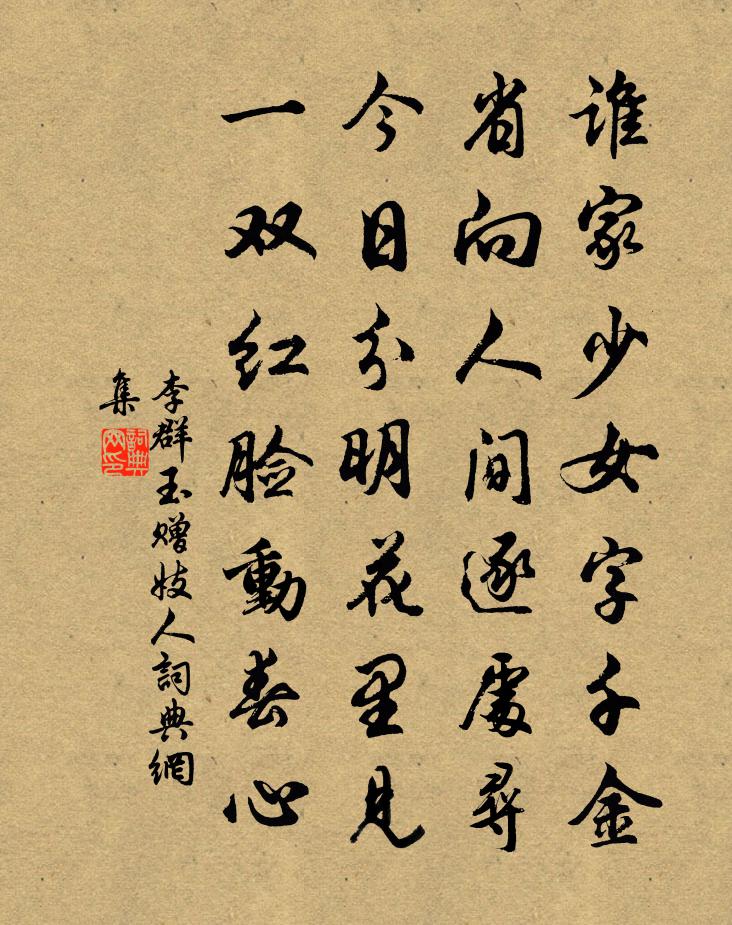 谁家少女字千金
省向人间逐處尋
今日分明花里見
一双红脸動春心
李群玉赠妓人詞典網
集
詞典網印